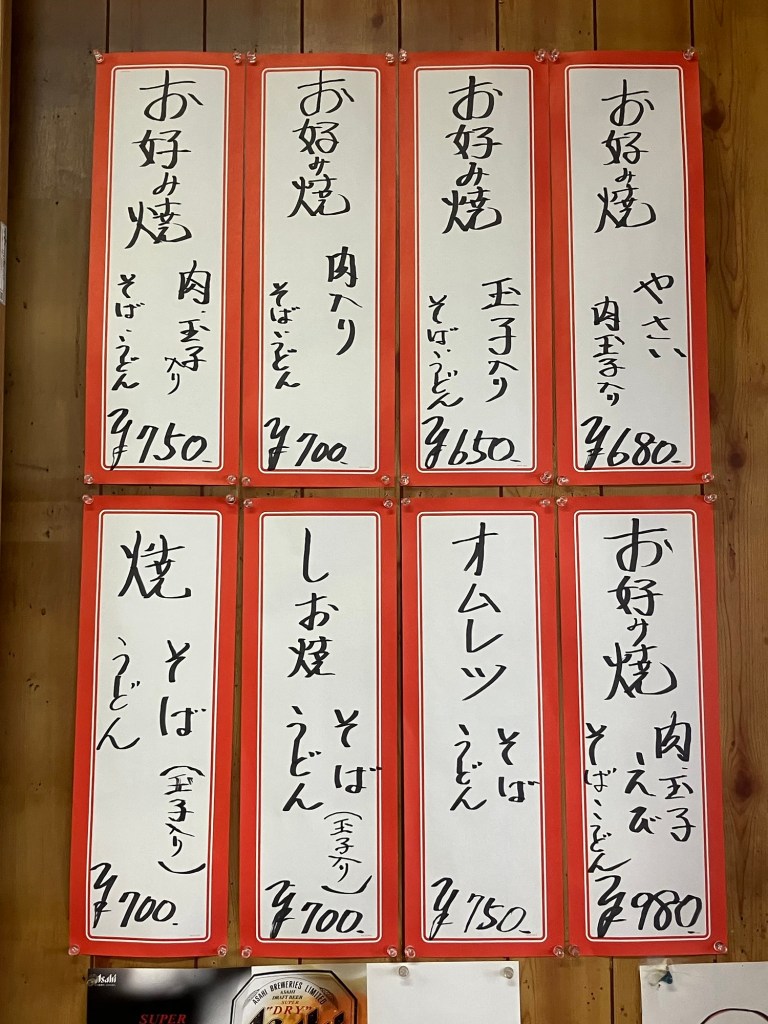 お好み焼
やさい
肉玉子入り
¥680.
お好み焼
玉子入り
そば・うどん
¥650.
お好み焼
肉入り
そば・うどん
¥700.
お好み焼
肉・玉子入り
そば・うどん
¥750.
お好み焼
肉・玉子
えび
そば・うどん
¥980.
オムレツ
そば
うどん
¥750.
しお焼
そば(玉子入り)
うどん
¥700.
焼
そば(玉子入り)
うどん
¥700.
Asahi
SUPER
ASAHI BREWERIES LIMITED
ASAHI
DRAFT BEER
SUPER
"DRY"